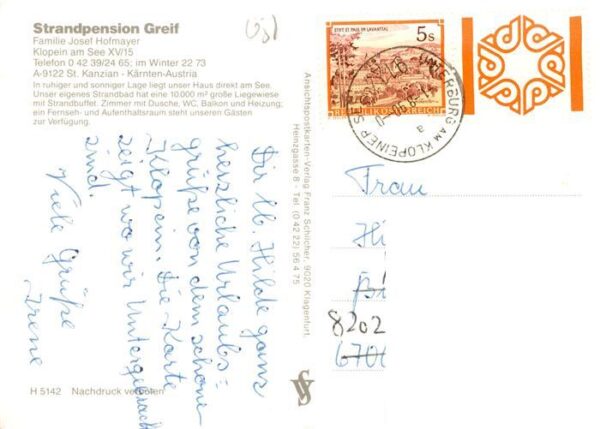 Strandpension Greif
Familie Josef Hofmayer
Klopein am See XV/15
Telefon 0 42 39/24 65; im Winter 22 73
A-9122 St. Kanzian - Kärnten-Austria
In ruhiger und sonniger Lage liegt unser Haus direkt am See.
Unser eigenes Strandbad hat eine 10.000 m² große Liegewiese
mit Strandbuffet. Zimmer mit Dusche, WC, Balkon und Heizung;
ein Fernseh- und Aufenthaltsraum steht unseren Gästen
zur Verfügung.
Dir lb. Hilde ganz
herzliche Urlaubs=
grüße von dem schönen
Klopein. Die Karte
zeigt wo wir Untergebracht
sind.
Viele Grüße
Irene
H 5142 Nachdruck verboten
Ansichtspostkarten-Verlag Franz Schilcher, 9020 Klagenfurt,
Heinzgasse 8 - Tel. (0 42 22) 56 4 75
STIFT ST. PAUL IM LAVANTTAL
5 S
REPUBLIK ÖSTERREICH
UNTERBURG AM KLOPEINER SEE
a
Frau
Hi
8202
670